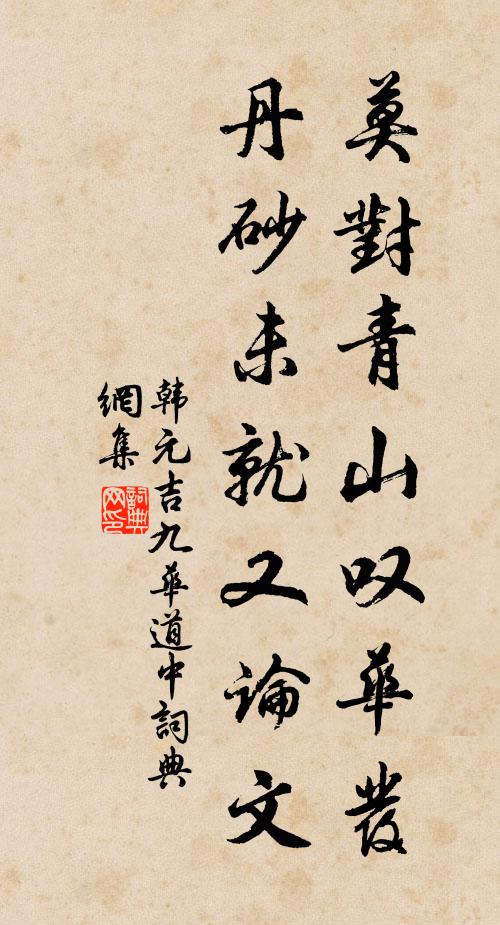 莫對青山叹華發
丹砂未就又論文
韩元吉九華道中詞典
網集
詞典网印